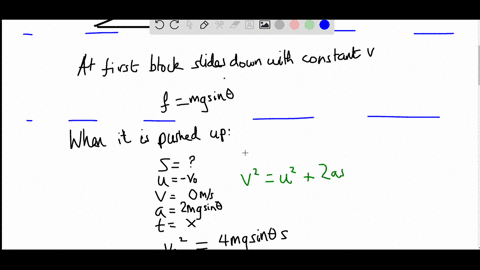 At first block slides down with constant v
f = mg sinθ
When it is pushed up:
S = ?
u = -v₀
V = 0 m/s
a = 2mg sinθ
t = x
V² = u² + 2as
v₀² = 4mg sinθ s